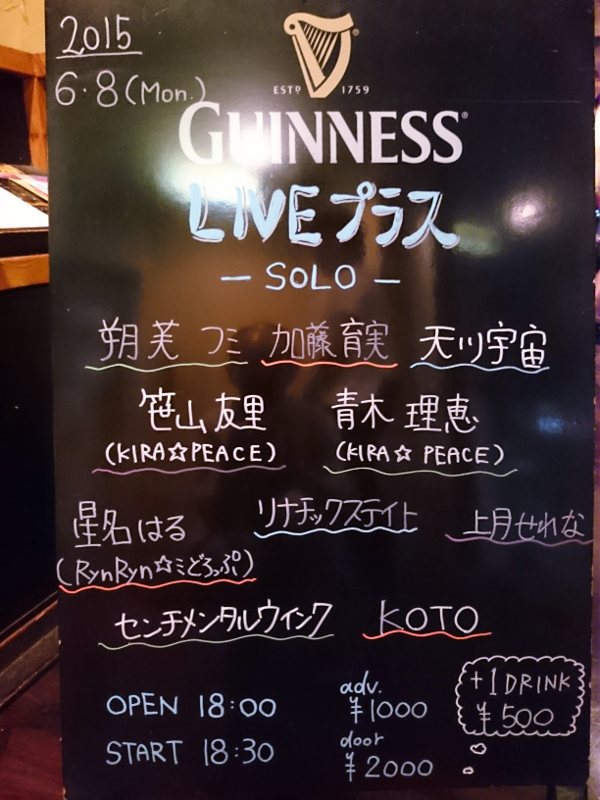 2015
6・8(Mon.)
ESTD 1759
GUINNESS®
LIVEプラス
— SOLO —
朔芙 フミ 加藤育実 天川宇宙
笹山友里 青木理恵
(KIRA☆PEACE) (KIRA☆ PEACE)
星名はる リナチックステイト 上月せれな
(RynRyn☆ミどろっぷ)
センチメンタルウインク KOTO
OPEN 18:00 adv. ¥1000
START 18:30 door ¥2000
+1DRINK
¥500